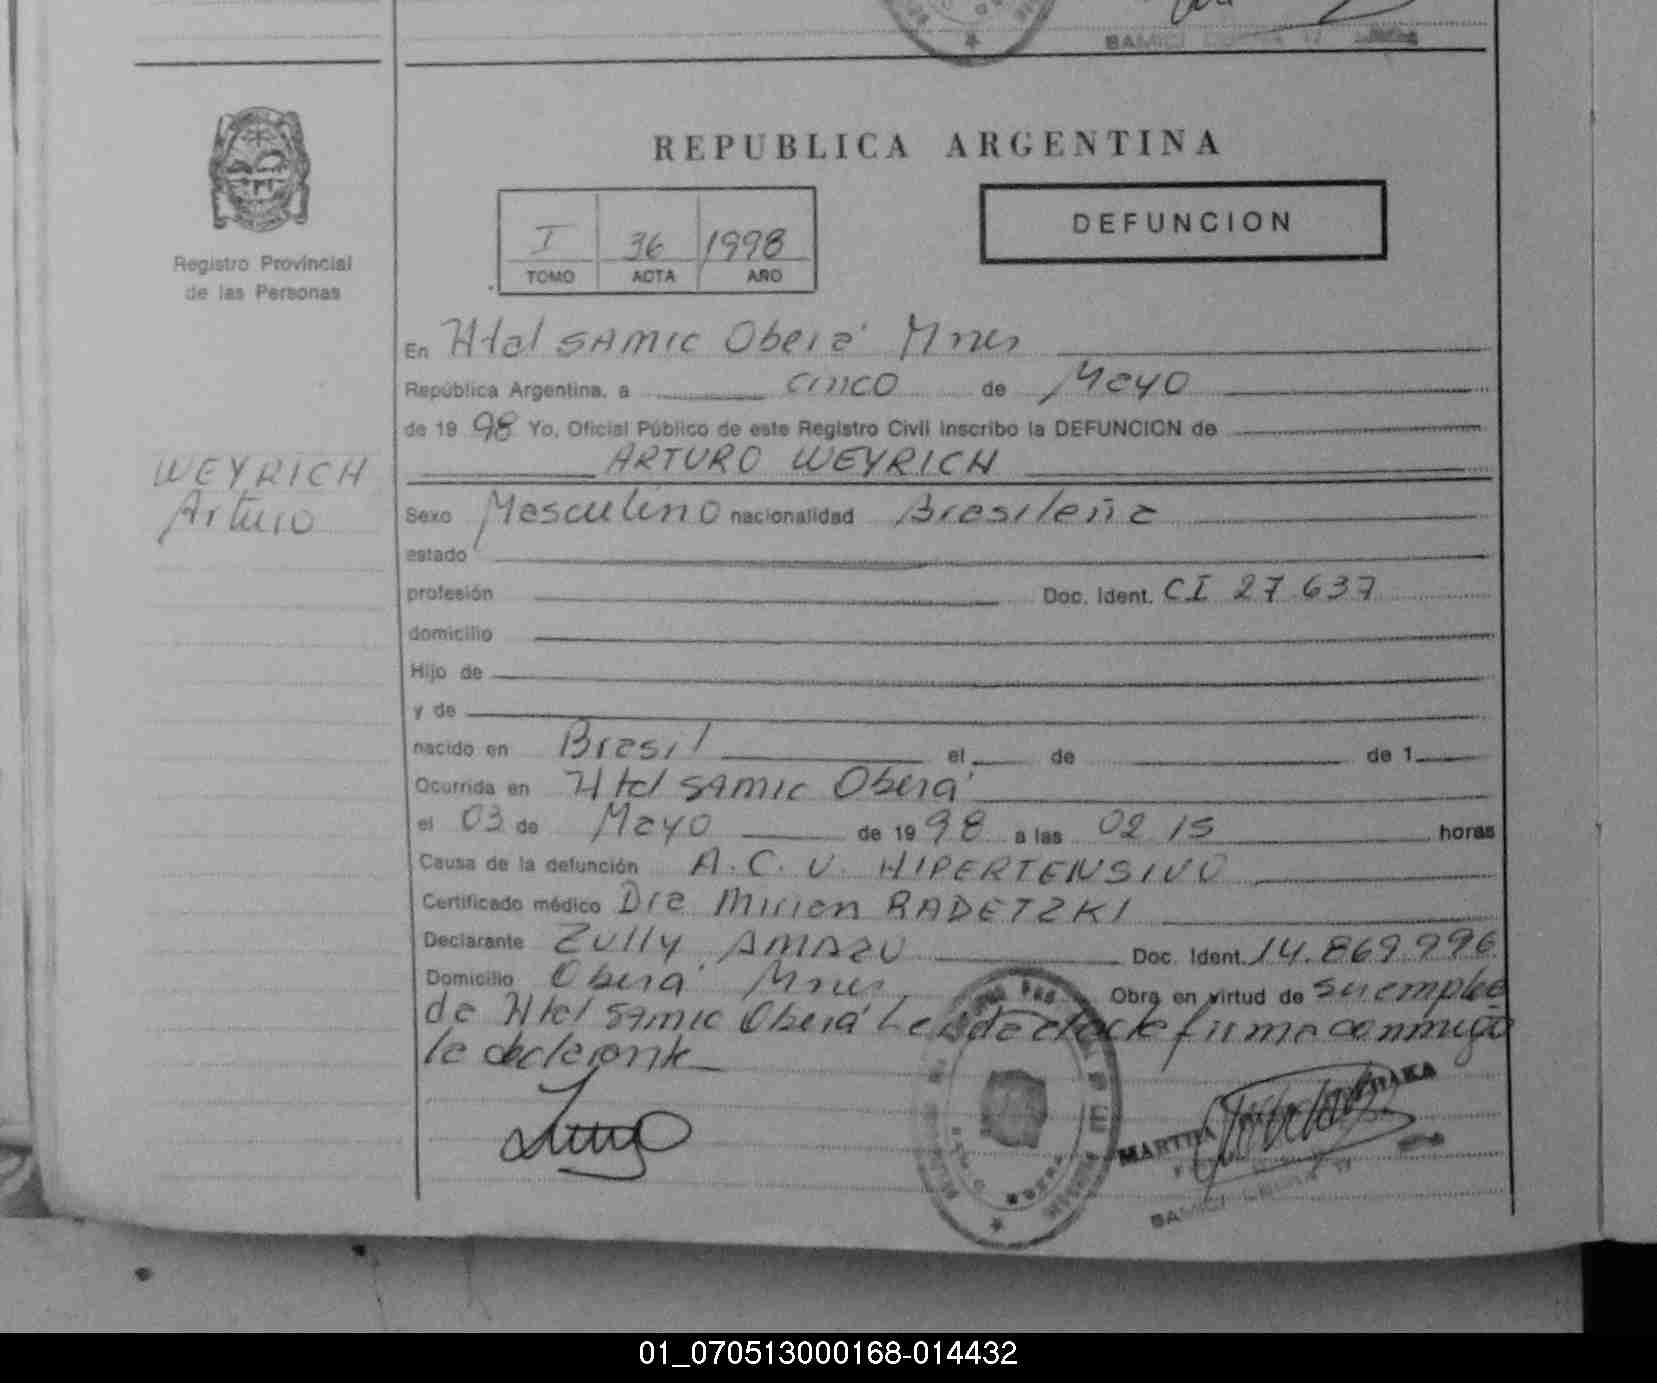 REPUBLICA ARGENTINA
DEFUNCION
I 36 1998
TOMO ACTA AÑO
Registro Provincial
de las Personas
En Htal SAMIC Oberá Mnes
República Argentina, a cinco de Mayo
de 1998 Yo, Oficial Público de este Registro Civil inscribo la DEFUNCION de
ARTURO WEYRICH
WEYRICH
Arturo
Sexo Masculino nacionalidad Brasileña
estado
profesión Doc. Ident. CI 27.637
domicilio
Hijo de
y de
nacido en Brasil el de de 1
Ocurrida en Htal SAMIC Oberá
el 03 de Mayo de 1998 a las 02 15 horas
Causa de la defunción A.C.V. HIPERTENSIVO
Certificado médico Dra Mirian RADETZKI
Declarante Zully AMAZU Doc. Ident. 14.869.996
Domicilio Oberá Mnes Obra en virtud de ser emplee
de Htal Samic Oberá Leida el acta firma conmigo
la declarante
MARTHA
01_070513000168-014432